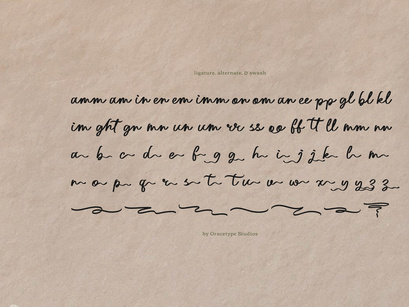 ligature, alternate, & swash
amm am in en em imm on om an ee pp gl bl kl
im ght gn mn un um rr ss oo ff tt ll mm nn
a b c d e f g g h i j j k l m
n o p q r s t t u v w x y y z z
by Gracetype Studios